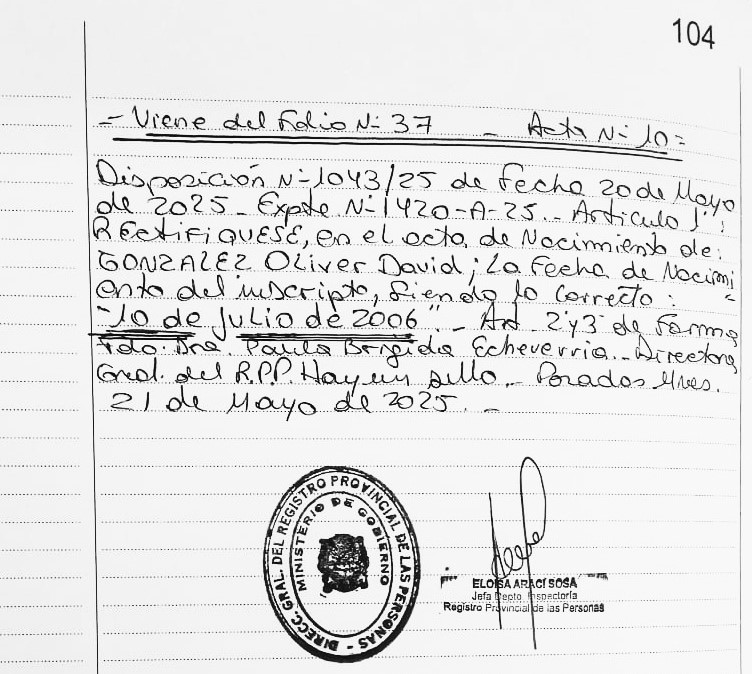 104
- Viene del Folio N- 37 - Acta N- 10 =
Disposición N-1043/25 de fecha 20 de Mayo
de 2025 - Expte N-1420-A-25 - Articulo 1º:
RECTIFIQUESE, en el acta de Nacimiento de:
GONZALEZ Oliver David; La Fecha de Nacimi =
ento del inscripto, siendo lo correcto:
"10 de julio de 2006" - Art 2 y 3 de forma
Fdo. Dra. Paula Brigida Echeverria - Directora
Gral. del R.P.P. Hay un sello - Posadas Mnes.
21 de Mayo de 2025. -
DIRECC. GRAL. DEL REGISTRO PROVINCIAL DE LAS PERSONAS -
MINISTERIO DE GOBIERNO
ELOISA ARACI SOSA
Jefa Depto. Inspectoría
Registro Provincial de las Personas